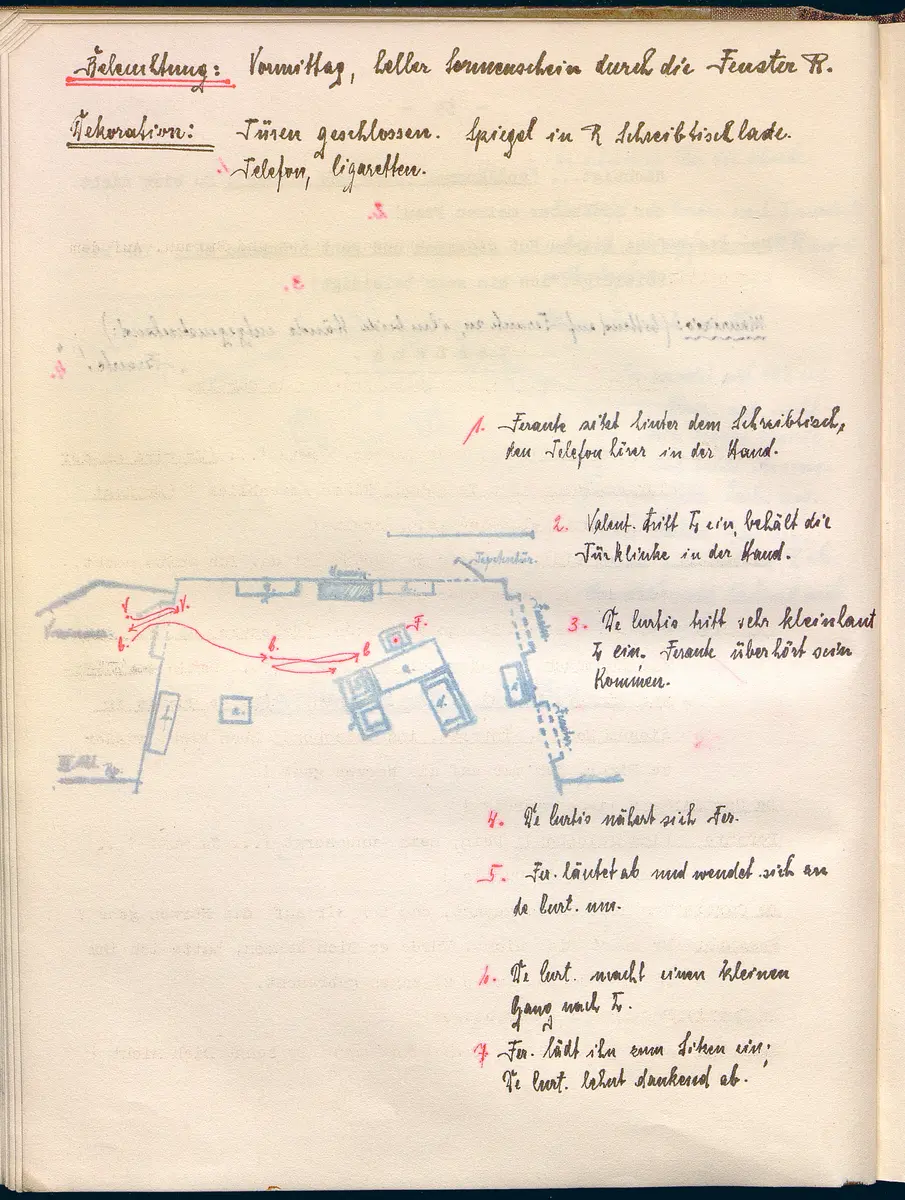 Beleuchtung: Vormittag, heller Sonnenschein durch die Fenster R.
Dekoration: Türen geschlossen. Spiegel in R Schreibtischlade.
Telefon, Cigaretten.
1. Ferante sitzt hinter dem Schreibtisch,
den Telefonhörer in der Hand.
2. Valent. tritt L ein, behält die
Türklinke in der Hand.
Tapetentür.
Kamin
V. V.
3. De Curtis tritt sehr kleinlaut
L ein. Ferante überhört sein
Kommen.
Fenster
F.
C. C. C
a.
d.
Fenster
III. Akt.
4. De Curtis nähert sich Fer.
5. Fer. läutet ab und wendet sich an
de Curt. um.
6. De Curt. macht einen kleinen
Gang nach L.
7. Fer. lädt ihn zum Sitzen ein;
De Curt. lehnt dankend ab.